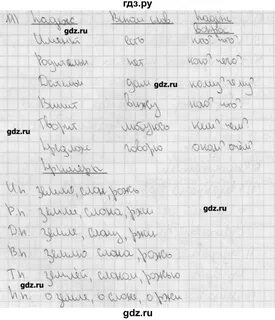 гдз.ру
11) Падеж Вспом. слов. Падеж. вопрос
Именит. есть кто? что?
Родительн. нет кого? чего?
Дательн. дам кому? чему?
Винит. вижу кого? что?
Творит. любуюсь кем? чем?
Предлож. говорю о ком? о чём?
Примеры
И.п. земля, слон, рожь
Р.п. земли, слона, ржи
Д.п. земле, слону, ржи
В.п. землю слона, рожь
Т.п. землёй, слоном, рожью
П.п. о земле, о слоне, о ржи
гдз.ру